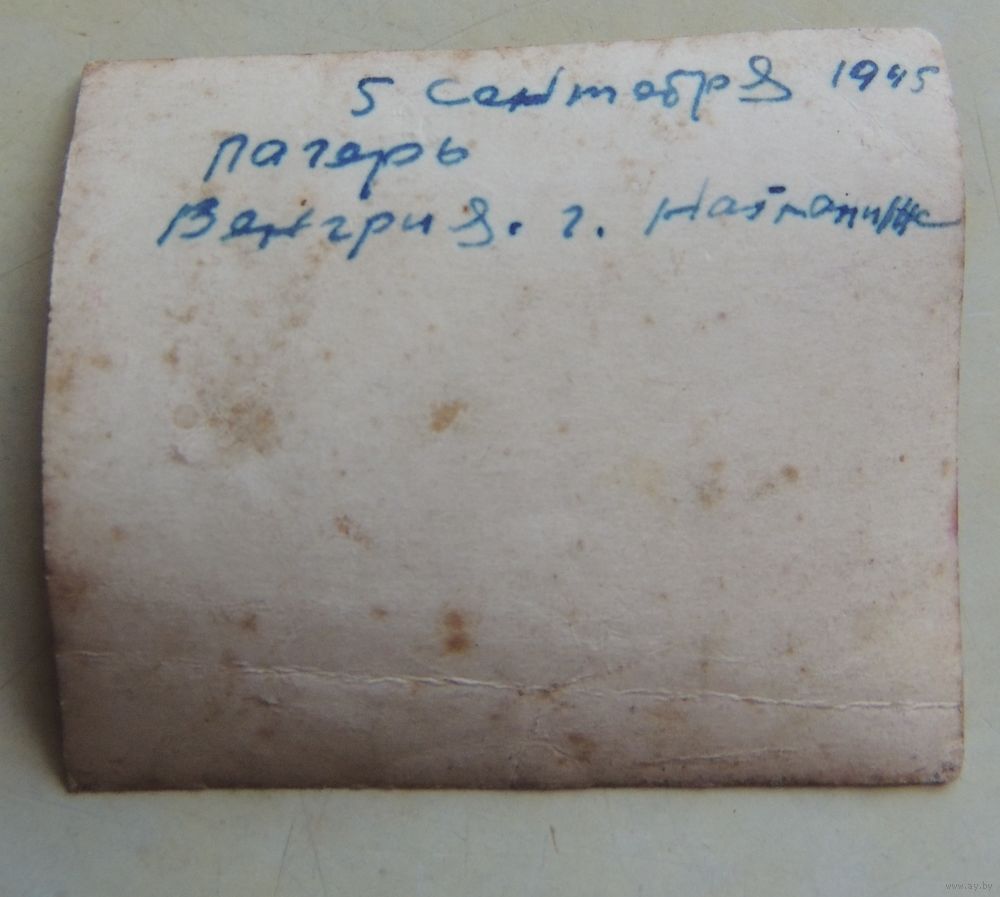 5 сентября 1945
лагерь
Венгрия. г.
www.ay.by